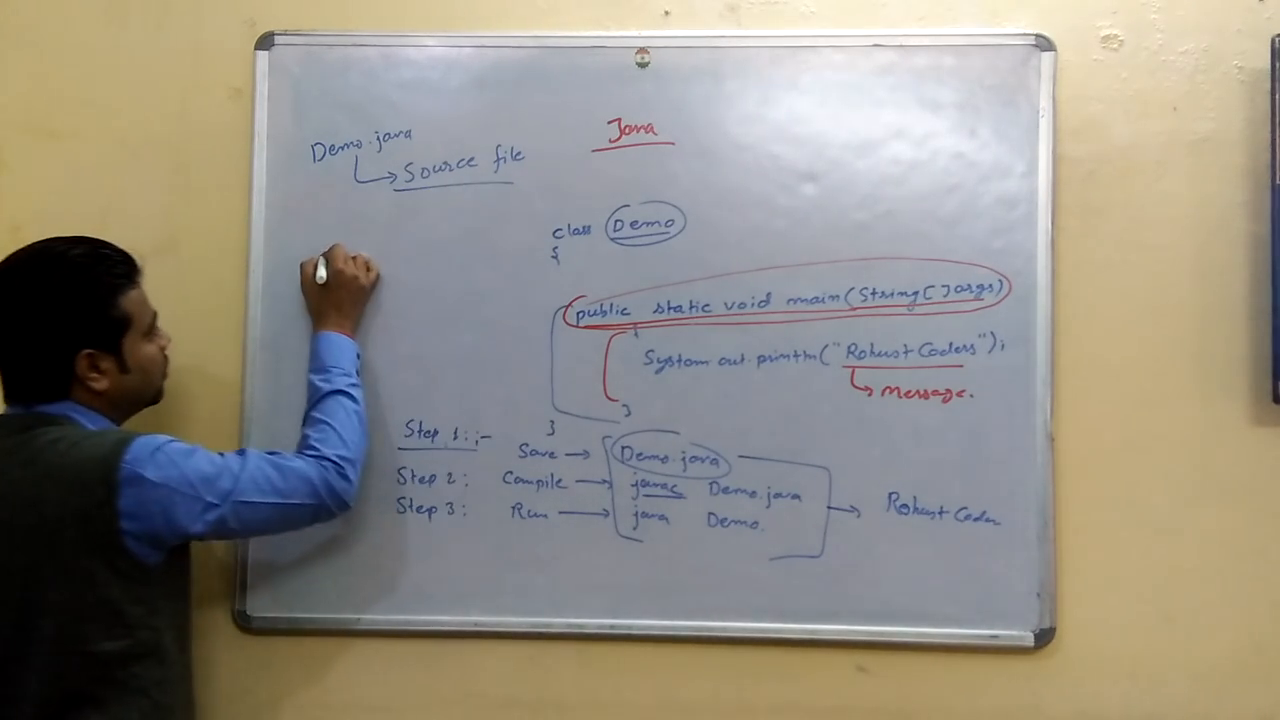 Java
Demo.java
Source file
class Demo
{
public static void main(String[]args)
{
System.out.println("Robust Coders");
message.
}
}
Step 1:;- Save → Demo.java
Step 2: Compile → javac Demo.java
Step 3: Run → java Demo.
→ Robust Coder